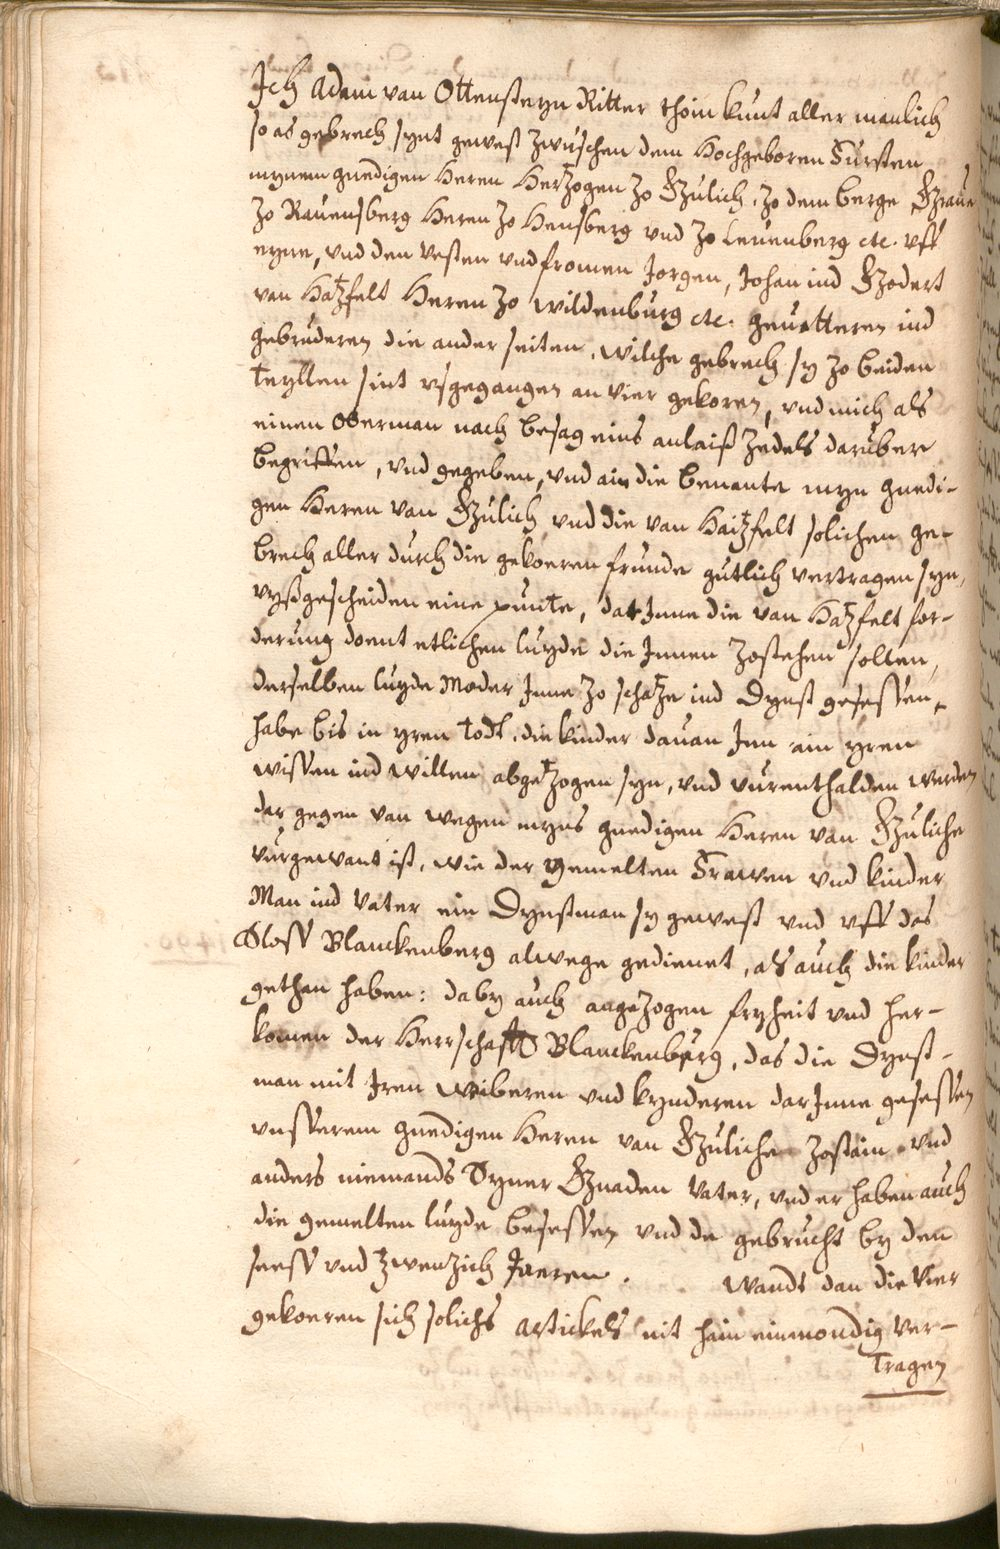 Ich Adam van Ottensteyn Ritter thoin kunt aller manlich
so as gebrech synt gewest zwuschen dem Hochgeboren Fursten
mynem gnedigen Heren Hertzogen zo Gzulich, zo dem berge, Gzraue
zo Rauensberg Heren zo Hensberg vnd zo Leuenberg etc. vff
eyne, vnd den vesten vnd fromen Jorgen, Johan ind Gzodert
van Hatzfelt Heren zo Wildenburg etc. geuetteren ind
gebruderen die ander seiten, wilche gebrech sy zo beiden
teyllen sint vsgegangen an vier gekoren, vnd mich als
einen Oberman nach besag eins anlaiß zedels daruber
begriffen, vnd gegeben, vnd ain die benante myn gnedi-
gen Heren van Gzulich vnd die van Haitzfelt solichen ge-
brech aller durch die gekoeren frunde gutlich vertragen syn,
vyßgescheiden eine puncte, dat Inne die van Hatzfelt for-
derung doent etlichen luyde die Innen zostehen solten,
derselben luyde Moder Inne zo schatze ind Dynst gesessen,
habe bis in yren todt, die kinder dauan Inn ain yren
wissen ind willen abgetzogen syn, vnd vurenthalden werden
dar gegen van wegen myns gnedigen Heren van Gzuliche
vurgewant ist, wie der gemelten Frawen vnd kinder
Man ind Vater ein Dynstman sy gewest vnd vff das
Sloss Blanckenberg alwege gedienet, als auch die kinder
gethan haben: daby auch angezogen fryheit vnd her-
komen der Herrschafft Blanckenburg, das die Dynst-
man mit Iren Wiberen vnd kynderen dar Inne gesessen
vnsserem gnedigen Heren van Gzuliche zostain vnd
anders niemands Syner Gznaden Vater, vnd er haben auch
die gemelten luyde besessen vnd de gebrucht by den
seess vnd zwenzich Jaeren. Wandt dan die vier
gekoeren sich solichs artickels nit hain einmondig ver-
tragen